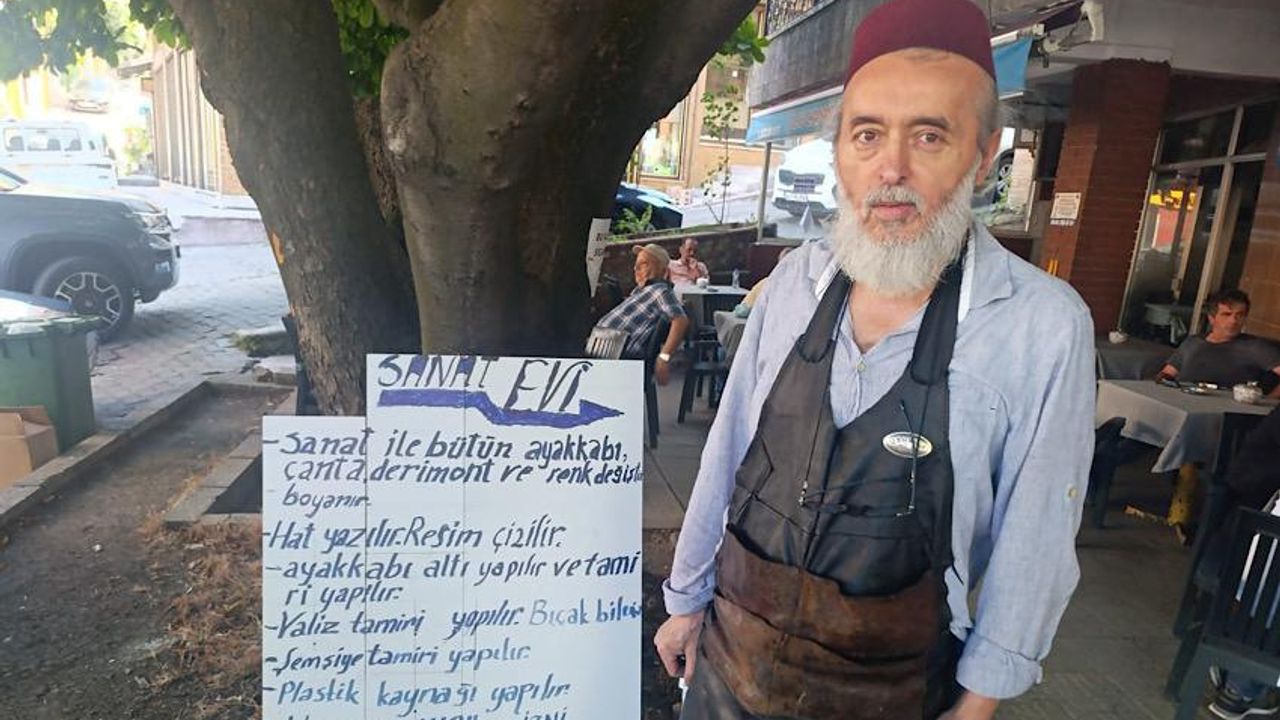 SANAT EVİ
-Sanat ile bütün ayakkabı,
çanta, derimont ve renk değiştir
boyanır.
-Hat yazılır. Resim çizilir.
-ayakkabı altı yapılır ve tami
ri yapılır.
-Valiz tamiri yapılır. Bıçak bile
-Şemsiye tamiri yapılır.
-Plastik kaynağı yapılır.